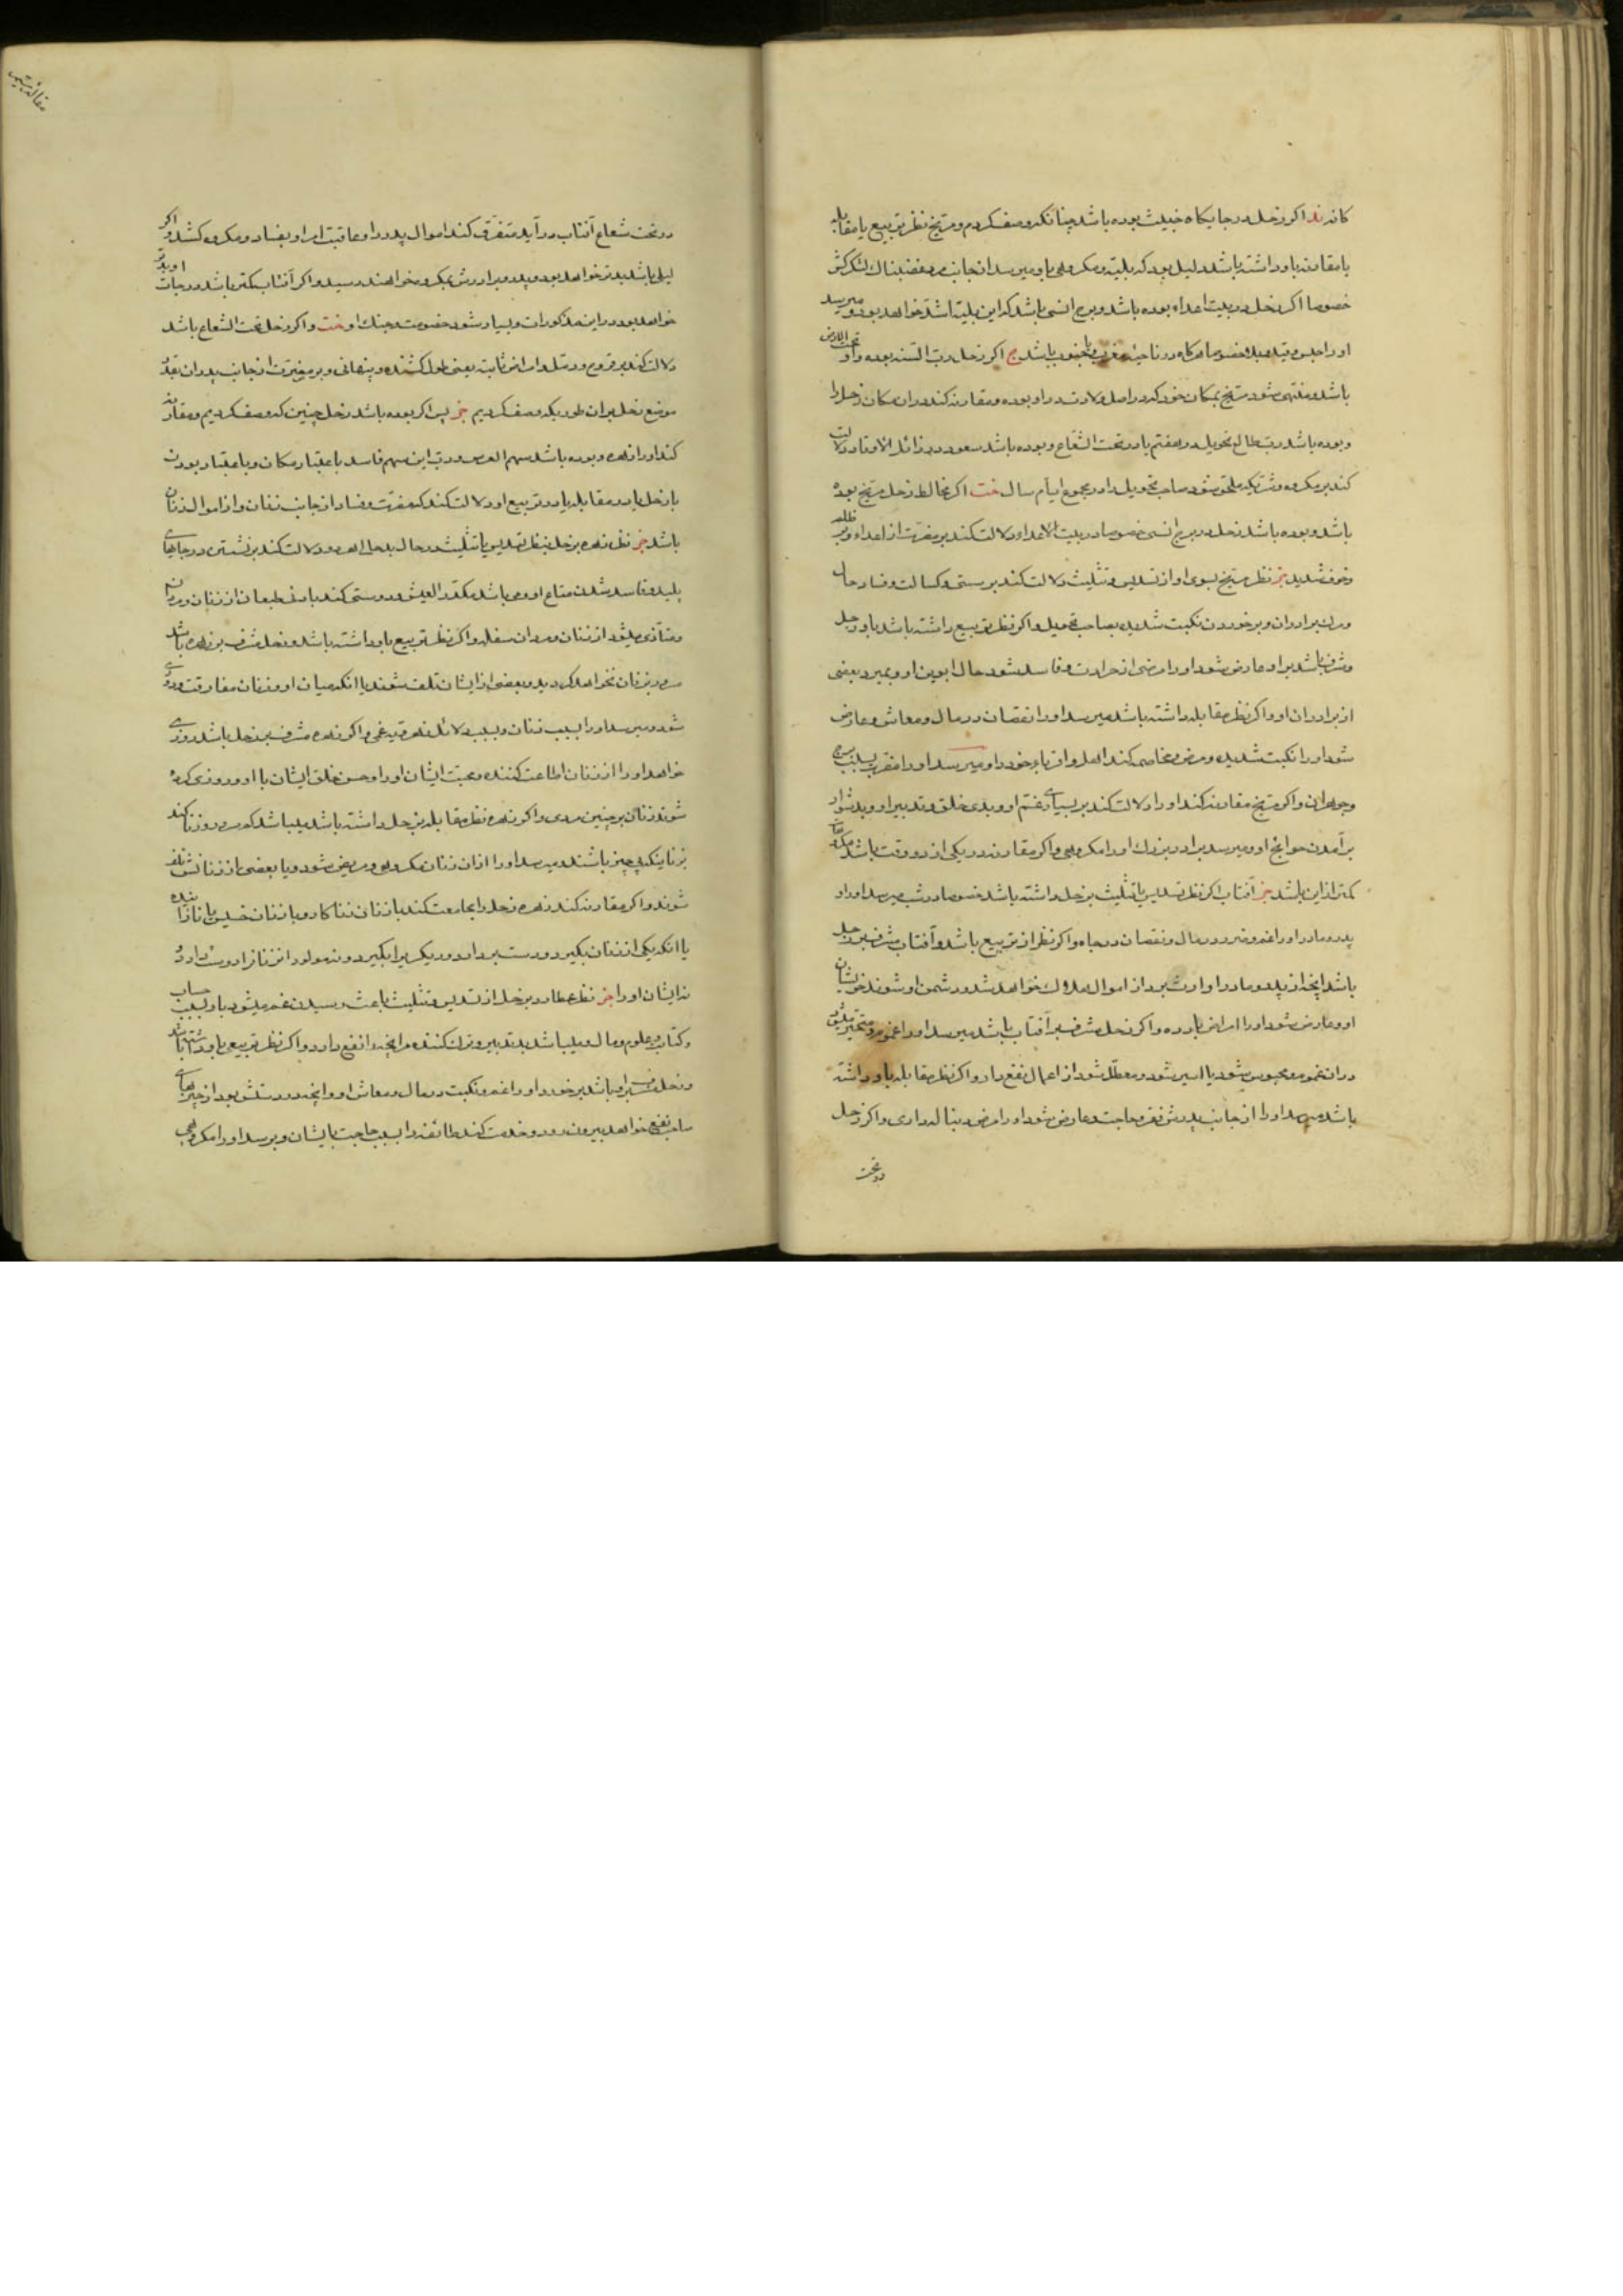 کانه ند اکر زحل در جایکاه خبیث بوده باشد چنانکه وصف کردم و مریخ نظر تربیع یا مقابله
یا مقارنه باو داشته باشد دلیل بود که بلیته و مکروهی باو میرسد از جانب مرد غضبناک لشکرکش
خصوصا اکر زحل در بیت اعداء بوده باشد و برج انسی باشد که این بلیته اشد خواهد بود و میرسد
او را حبس و قید خصوصا هرکاه در ناحیه مغرب یا جنوب باشد اکر زحل رب السنه بوده و او تحت الارض
باشد و منتهی شود مریخ بمکان خود که در اصل ولادت در او بوده و مقارنه کند در ان مکان زحل را
و بوده باشد رب طالع تحویل در هفتم یا در تحت الشعاع و بوده باشد سعود در زائل الاوتاد دلالت
کند بر مکروه که ملحق شود صاحب تحویل را در مجموع ایام سال خت اکر مخالط زحل مریخ بوده
باشد و بوده باشد زحل در برج انسی خصوصا در بیت الاعداء دلالت کند بر مضرت از اعداء و بر ظلمه
و خوف شدید خر نظر مریخ بسوی او از تسدیس و تثلیث دلالت کند بر سستی و کسالت و فساد حال
و مرک برادران و بر خوردن نکبت شدید بصاحب تحویل و اکر نظر تربیع داشته باشد باو زحل
و مشرف باشد بر او عارض شود او را مرضی از حرارت و فاسد شود حال ابوین او و بمیرد بعضی
از برادران او و اکر نظر مقابله داشته باشد میرسد او را نقصان در مال و معاش و عارض
شود او را نکبت شدید و مرض و مخاصمه کند اهل و اقرباء خود را و میرسد او را مضرت بسبب
و اکر مریخ مقارنه کند او را دلالت کند بر بسیاری غم او و بدی خلق و تدبیر او و بد شوار
بر آمدن حوایج او و میرسد برادر بزرک او را مکروهی و اکر مقارنه در یکی از دو وقت باشد
کمتر از این باشد خر آفتاب اکر نظر تسدیس یا تثلیث بزحل داشته باشد خصوصا در شب میرسد او را و
پدر و مادر او را غم و ضرر در مال و نقصان در جاه و اکر نظر از تربیع باشد و آفتاب مشرف بر زحل
باشد انچه از پدر و مادر او ارث برد از اموال هلاک خواهد شد و دشمن او شوند خویشان
او و عارض شود او را امراض بارده و اکر زحل مشرف بر آفتاب باشد میرسد او را غم و مرد متحیر میشود
در ان غم و محبوس شود یا اسیر شود و معطل شود از اعمال نفع دار و اکر نظر مقابله باو داشته
باشد میرسد او را از جانب پدرش فقر و حاجت و عارض شود او را مرض دنباله داری و اکر زحل
در تحت
در تحت شعاع آفتاب در آید متفرق کند اموال پدر را و عاقبت امر او بفساد و مکروه کشد و اکر
لیلی باشد بدتر خواهد بود و پدر و برادرش بمکروه خواهند رسید و اکر آفتاب کمتر باشد درجات او بدتر
خواهد بود در این مذکورات و بسیار شود خصومت و جنک او خت و اکر زحل تحت الشعاع باشد
دلالت کند بر قروح و سل و امراض ثابته یعنی طول کشنده و پنهانی و بر مضرت از جانب پدران بقدر
موضع زحل بر ان طور یکه وصف کردیم خر پس اکر بوده باشد زحل چنین که وصف کردیم و مقارنه
کند او را زهره و بوده باشد سهم العرس و رب این سهم فاسد باعتبار مکان و باعتبار بودن
با زحل یا در مقابله یا در تربیع او دلالت کند که مضرت و فساد از جانب زنان و از اموال زنان
باشد خر نظر زهره بزحل بنظر تسدیس یا تثلیث در حال بدحالی زهره دلالت کند بر نشستن در جاهای
پلید و فاسد شدن متاع او و می باشد مکدر العیش و دوستی کند با دنی طبعان از زنان و مردان
و متأذی میشود از زنان و مردان سفله و اکر نظر تربیع باو داشته باشد و زحل مشرف بر زهره باشد
مسرور بزنان نخواهد کردید و بعضی از ایشان تلف شوند یا انکه میان او و زنان مفارقت و دوری
شود و میرسد او را بسبب زنان و بسبب دلائل زهره غمی و اکر زهره مشرف بر زحل باشد روزی
خواهد او را از زنان اطاعت کننده و محبت ایشان او را و حسن خلق ایشان با او و روزی کرده
شوند زنان بر چنین مردی و اکر زهره نظر مقابله بزحل داشته باشد میباشد که مسرور زنا کند
بزنانیکه بی چیز باشند و میرسد او را از ان زنان مکروهی و مریض شود و یا بعضی از زنانش تلف
شوند و اکر مقارنه کند زهره زحل را مجامعت کند با زنان زنا کار و با زنان خسیس یا نازاینده
یا انکه یکی از زنان بکیرد و دست بردارد و دیکریرا بکیرد و نه مولود ان زنانرا دوست دارد
نه ایشان او را خر نظر عطارد بزحل از تسدیس و تثلیث باعث رسیدن غم میشود باو بسبب حساب
و کتاب و علوم و مال و میباشد بد تدبیر و ترک کننده مر انچه را نفع دارد و اکر نظر تربیعی باو داشته باشد
و زحل مشرف بر او باشد بر خورد او را غم و نکبت در مال و معاش او و انچه در دستش بود از چیزهای
صاحب نفع خواهد بیرون رود و خدمت کند طائفه را بسبب حاجت بایشان و برسد او را مکروهی